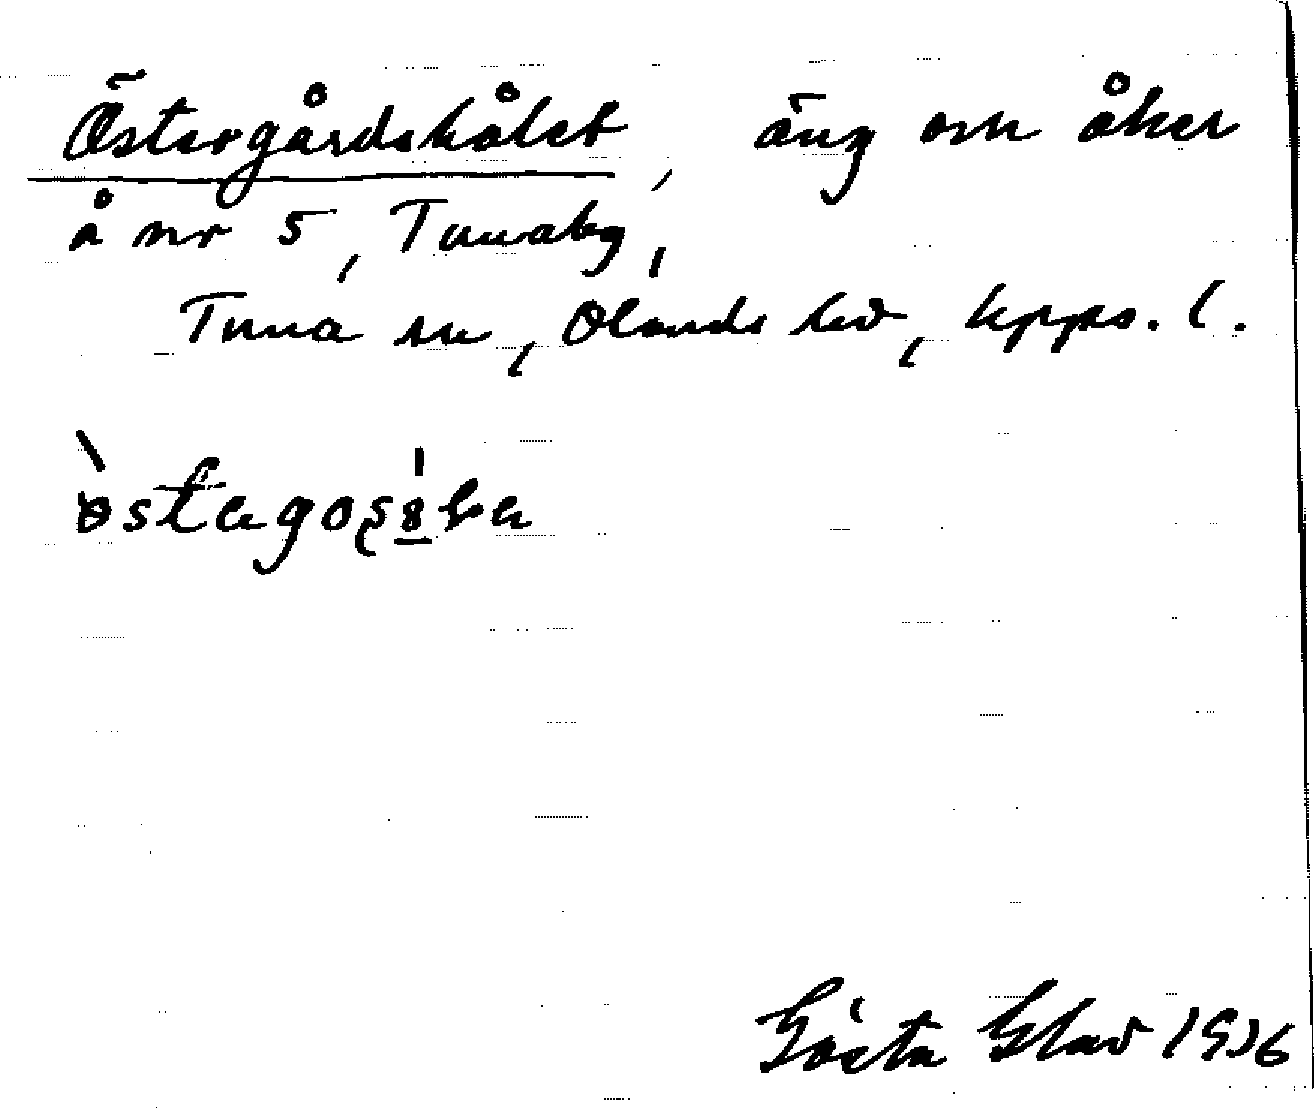 Östergårdshålet, äng om åker
å nr 5, Tunaby,
Tuna sn, Olands hd, Upps. l.
Gösta Glad 1936